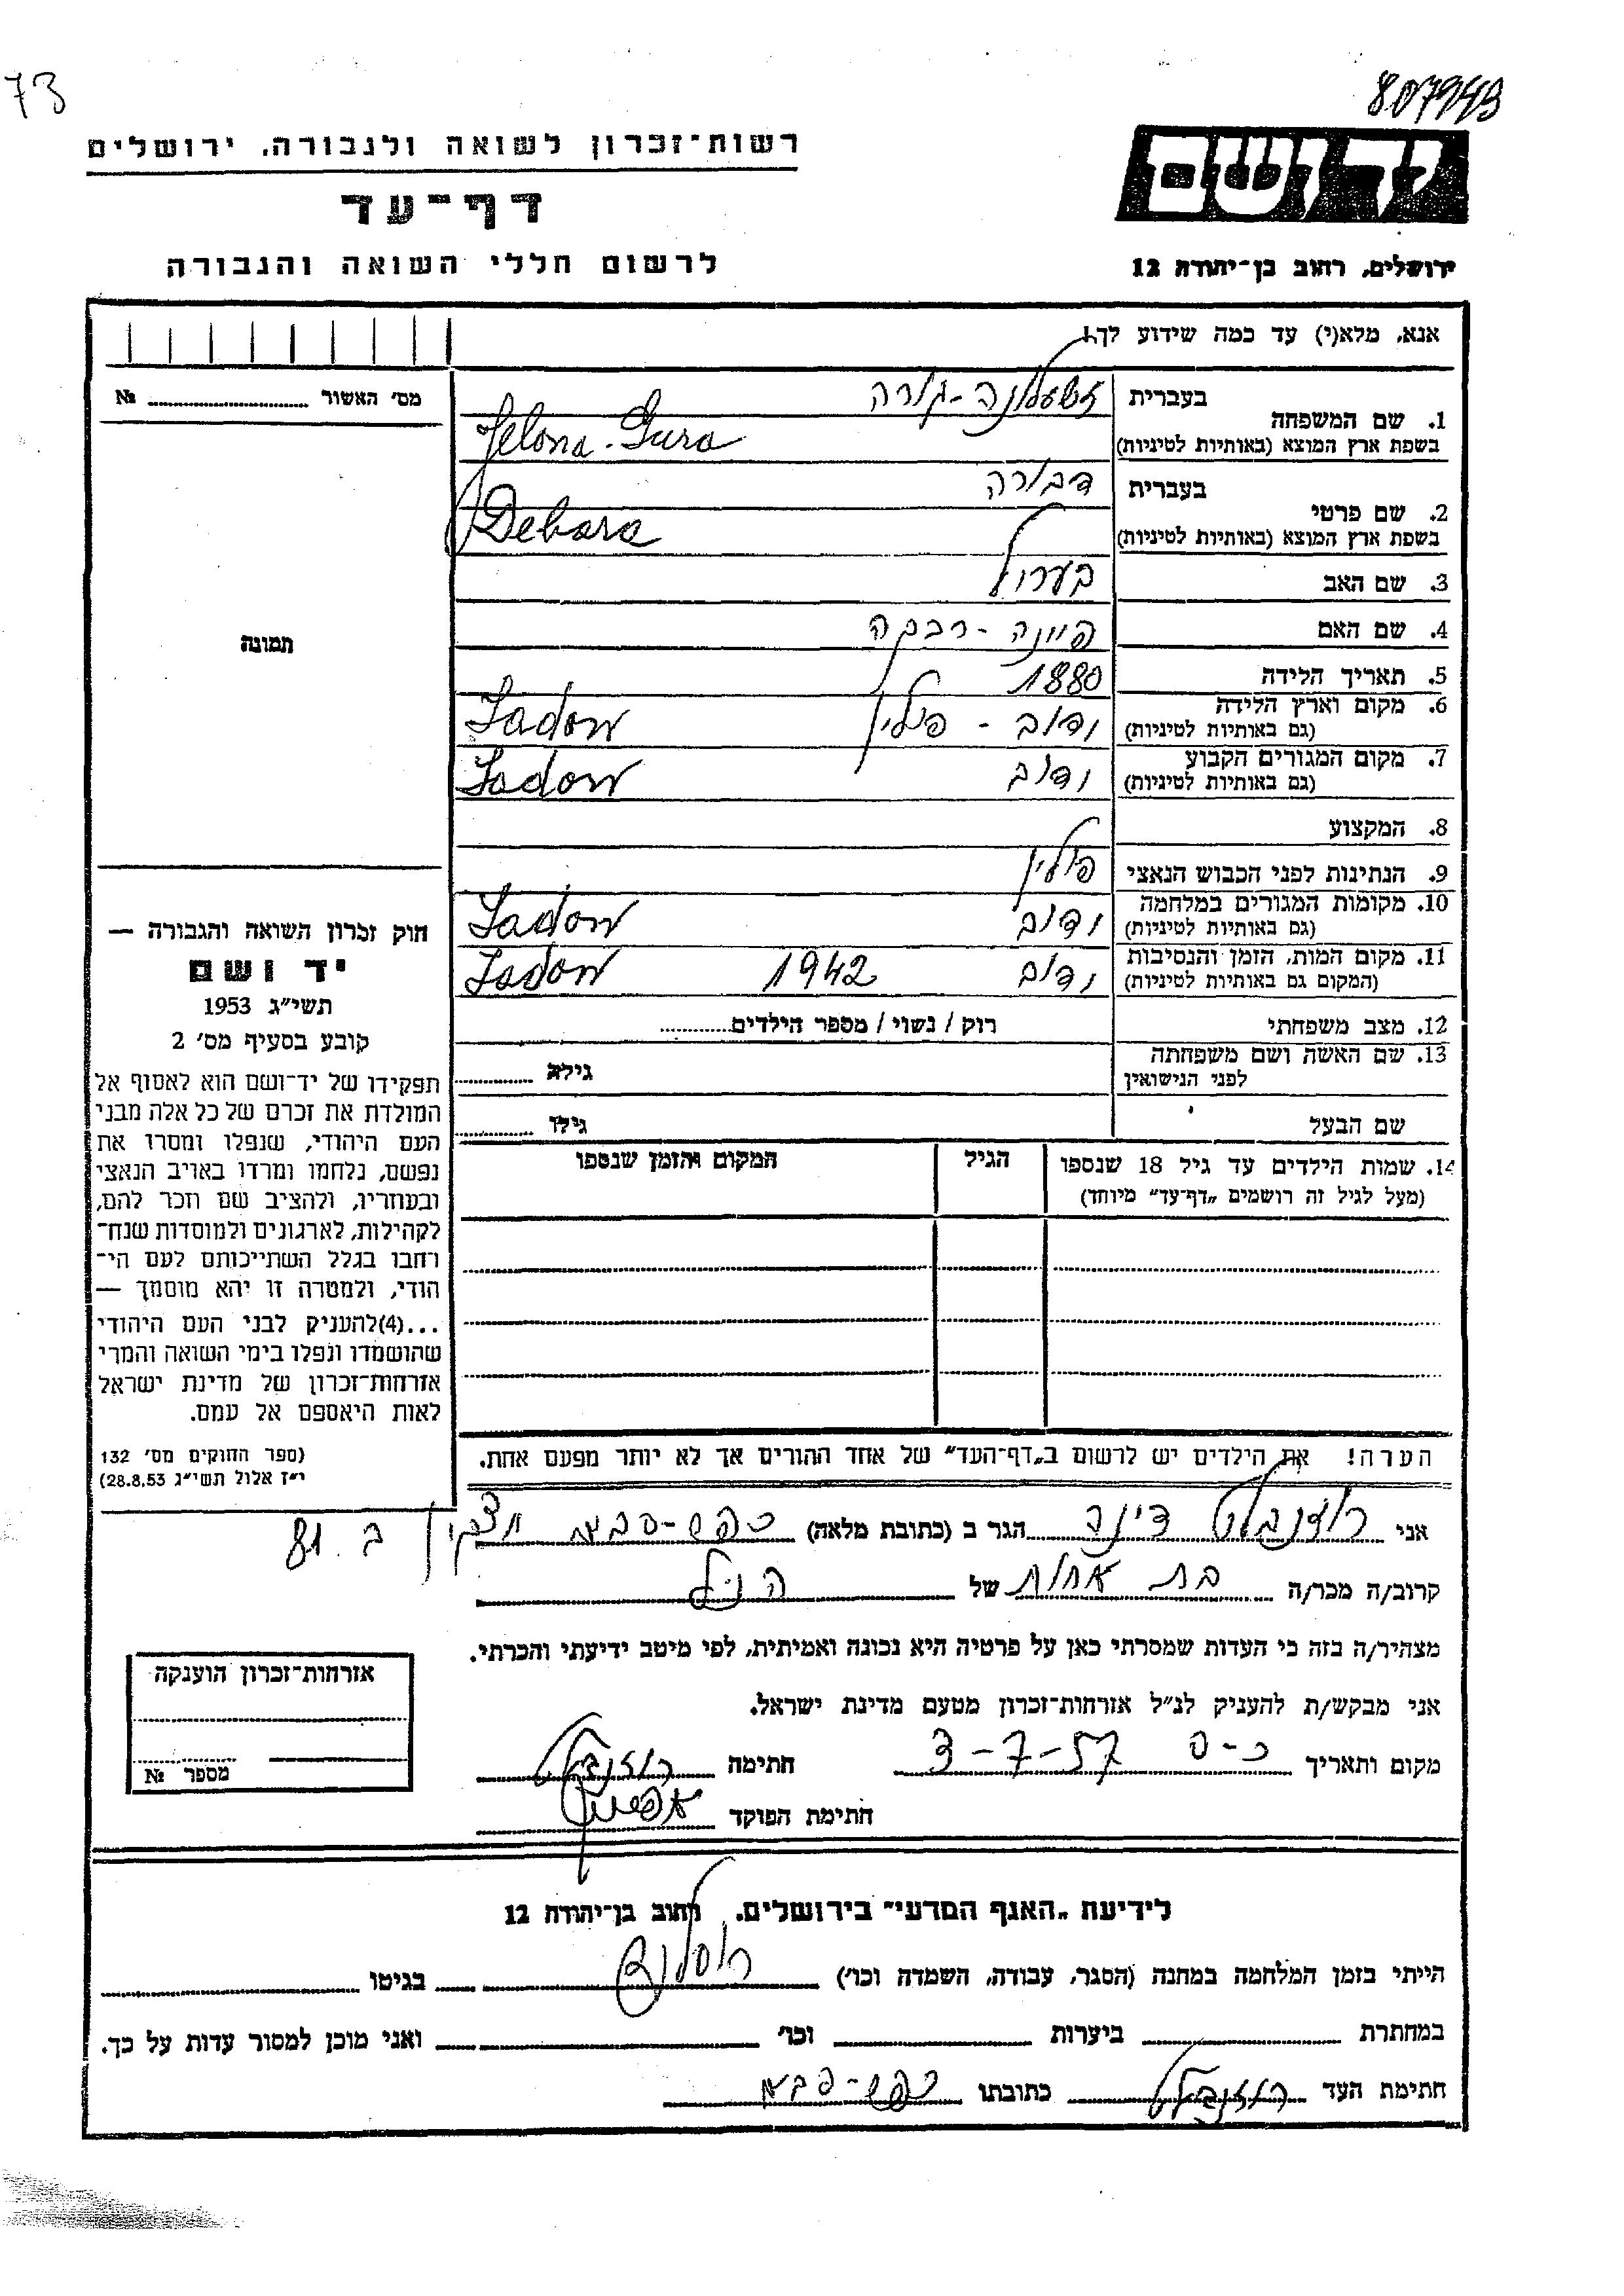 73
807943
רשות־זכרון לשואה ולגבורה, ירושלים
דף־עד
לרשום חללי השואה והגבורה
יד ושם
ירושלים, רחוב בן־יהודה 12
אנא, מלא(י) עד כמה שידוע לך!
מס׳ האשור № 
1. שם המשפחה
בעברית
זשעלונה-גורה
בשפת ארץ המוצא (באותיות לטיניות)
Jelona-Gura
2. שם פרטי
בעברית
דבורה
בשפת ארץ המוצא (באותיות לטיניות)
Debara
3. שם האב
4. שם האם
רבקה
תמונה
5. תאריך הלידה 1880
6. מקום וארץ הלידה
(גם באותיות לטיניות)
ידוב - פולין Jadow
7. מקום המגורים הקבוע
(גם באותיות לטיניות)
ידוב Jadow
8. המקצוע
9. הנתינות לפני הכבוש הנאצי פולין
10. מקומות המגורים במלחמה
(גם באותיות לטיניות)
ידוב Jadow
11. מקום המות, הזמן והנסיבות
(המקום גם באותיות לטיניות)
ידוב 1942 Jadow
12. מצב משפחתי רוק / נשוי / מספר הילדים
13. שם האשה ושם משפחתה
לפני הנישואין
גילה
שם הבעל גילו
14. שמות הילדים עד גיל 18 שנספו
(מעל לגיל זה רושמים „דף־עד״ מיוחד)
הגיל
המקום והזמן שנספו
חוק זכרון השואה והגבורה —
יד ושם
תשי״ג 1953
קובע בסעיף מס׳ 2
תפקידו של יד־ושם הוא לאסוף אל
המולדת את זכרם של כל אלה מבני
העם היהודי, שנפלו ומסרו את
נפשם, נלחמו ומרדו באויב הנאצי
ובעוזריו, ולהציב שם וזכר להם,
לקהילות, לארגונים ולמוסדות שנח־
רחבו בגלל השתייכותם לעם הי־
הודי, ולמטרה זו יהא מוסמך —
...(4)להעניק לבני העם היהודי
שהושמדו ונפלו בימי השואה והמרי
אזרחות־זכרון של מדינת ישראל
לאות היאספם אל עמם.
(ספר החוקים מס׳ 132
י״ז אלול תשי״ג 28.8.53)
הערה! את הילדים יש לרשום ב„דף־העד״ של אחד ההורים אך לא יותר מפעם אחת.
אני רוזנבלט דינה הגר ב (כתובת מלאה) כפר-סבא ב. 81
קרוב/ה מכר/ה בת אחות של הנ״ל
מצהיר/ה בזה כי העדות שמסרתי כאן על פרטיה היא נכונה ואמיתית, לפי מיטב ידיעתי והכרתי.
אני מבקש/ת להעניק לנ״ל אזרחות־זכרון מטעם מדינת ישראל.
מקום ותאריך כ-ס 3-7-57 חתימה רוזנבלט
חתימת הפוקד
אזרחות־זכרון הוענקה
מספר №
לידיעת „האגף המדעי״ בירושלים, רחוב בן־יהודה 12
הייתי בזמן המלחמה במחנה (הסגר, עבודה, השמדה וכו׳) רוסלנד בגיטו
במחתרת ביערות וכו׳ ואני מוכן למסור עדות על כך.
חתימת העד רוזנבלט כתובתו כפר-סבא